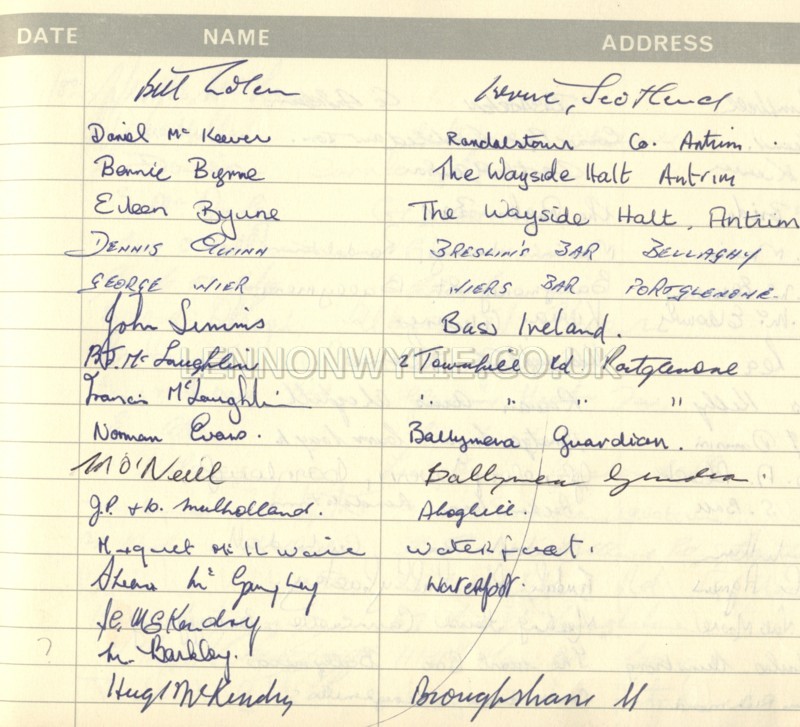 DATE NAME ADDRESS
Bill Scotland
Daniel Mc Keever Randalstown Co. Antrim.
Bennie Byrne The Wayside Halt Antrim
Eileen Byrne The Wayside Halt, Antrim
DENNIS QUINN BRESLIN'S BAR BELLAGHY
GEORGE WIER WIERS BAR PORTGLENONE
John Simms Bass Ireland.
P.J. McLaughlin 2 Townhill Rd. Portglenone
Francis McLaughlin " " " "
LENNONWYLIE.CO.UK
Norman Evans. Ballymena Guardian.
M O'Neill Ballymena Guardian.
J.P. + D. Mulholland. Ahoghill.
Waterfoot.
Mc Waterfoot.
McKendry
? Barkley.
Hugh McKendry Broughshane